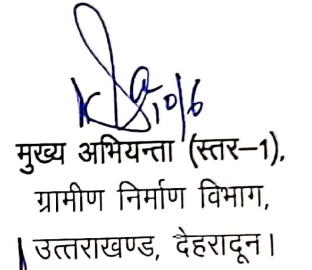 10/6
मुख्य अभियन्ता (स्तर–1),
ग्रामीण निर्माण विभाग,
उत्तराखण्ड, देहरादून।